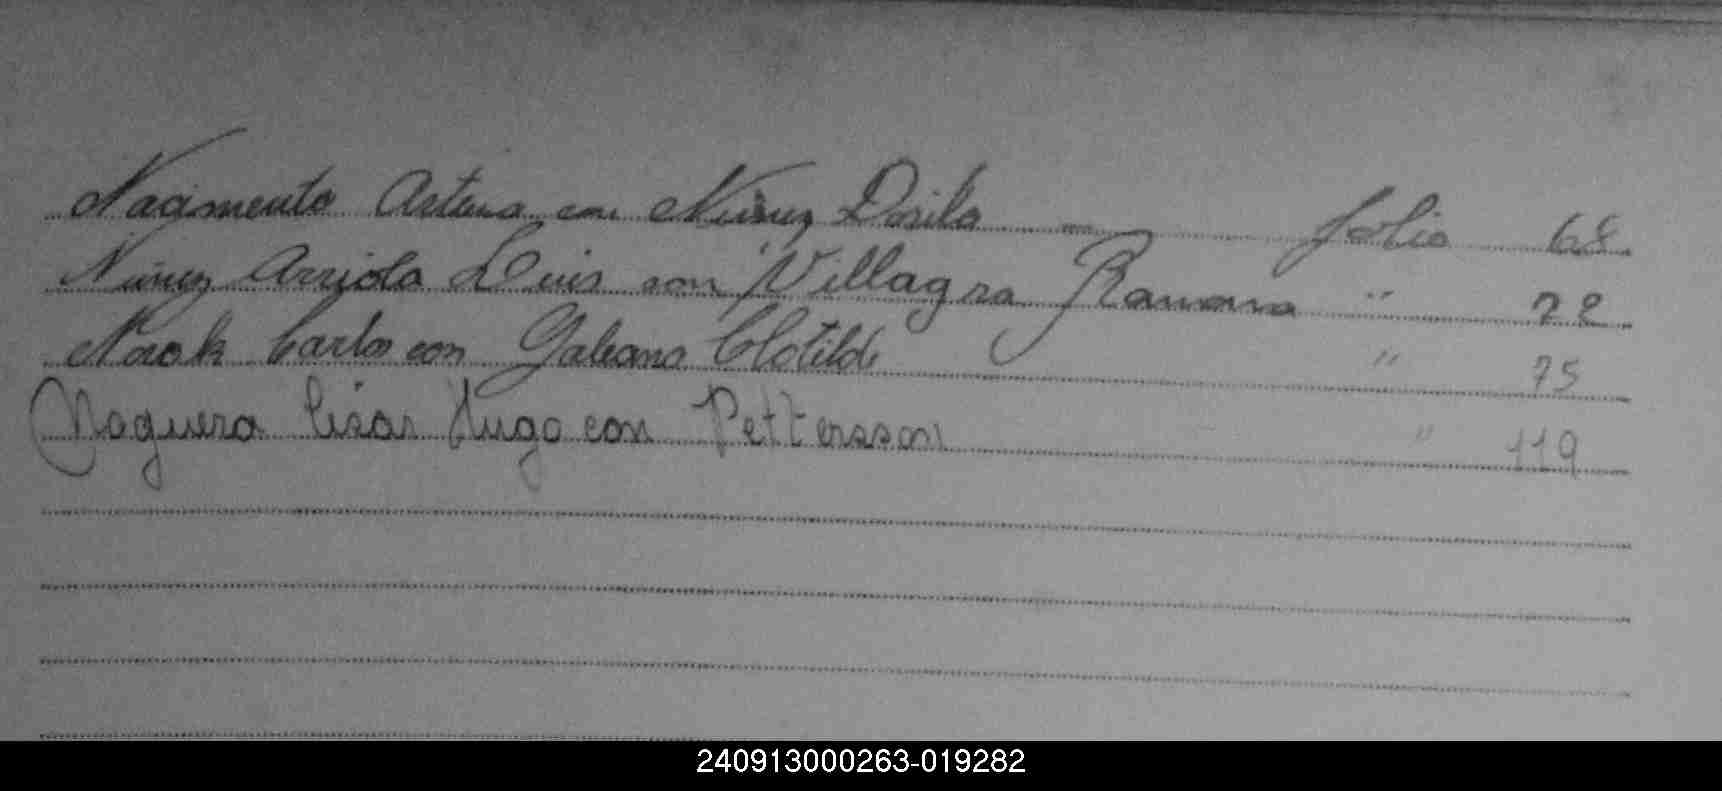 Nacimento Artura con Núñez Dorila — folio 68
Núñez Arriola Luis con Villagra Ramona " 72
Novak Carlos con Galeano Clotilde " 75
Noguera César Hugo con Pettersson " 119
240913000263-019282